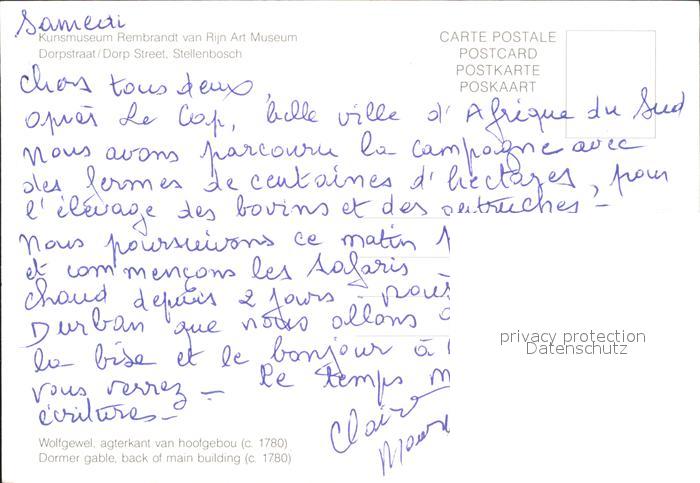 Samedi
Kunsmuseum Rembrandt van Rijn Art Museum
Dorpstraat/Dorp Street, Stellenbosch
CARTE POSTALE
POSTCARD
POSTKARTE
POSKAART
Chers tous deux,
après Le Cap, belle ville d'Afrique du Sud
nous avons parcouru la campagne avec
des fermes de centaines d'hectares, pour
l'élevage des bovins et des autruches -
Nous poursuivons ce matin
et commençons les safaris
chaud depuis 2 jours - nous
Durban que nous allons
la bise et le bonjour à
vous verrez - Le temps
écritures -
Claire
privacy protection
Datenschutz
Wolfgewel, agterkant van hoofgebou (c. 1780)
Dormer gable, back of main building (c. 1780)